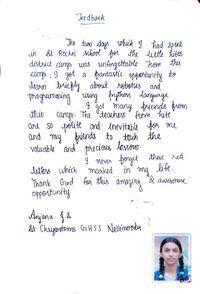 Feedback
The two days which I had spent
in St Rocks school for the little kites
district camp was unforgettable. From this
camp, I got a fantastic opportunity to
learn briefly about robotics and
programming using python language.
I got many friends from
this camp. The teachers from kite
are so polite and inevitable for me
and my friends to teach the
valuable and precious lessons.
I never forget these red
letters which marked in my life.
Thank God for this amazing & awesome
opportunity
Anjana
St. Chrysostoms G.H.S.S Nellimoodu